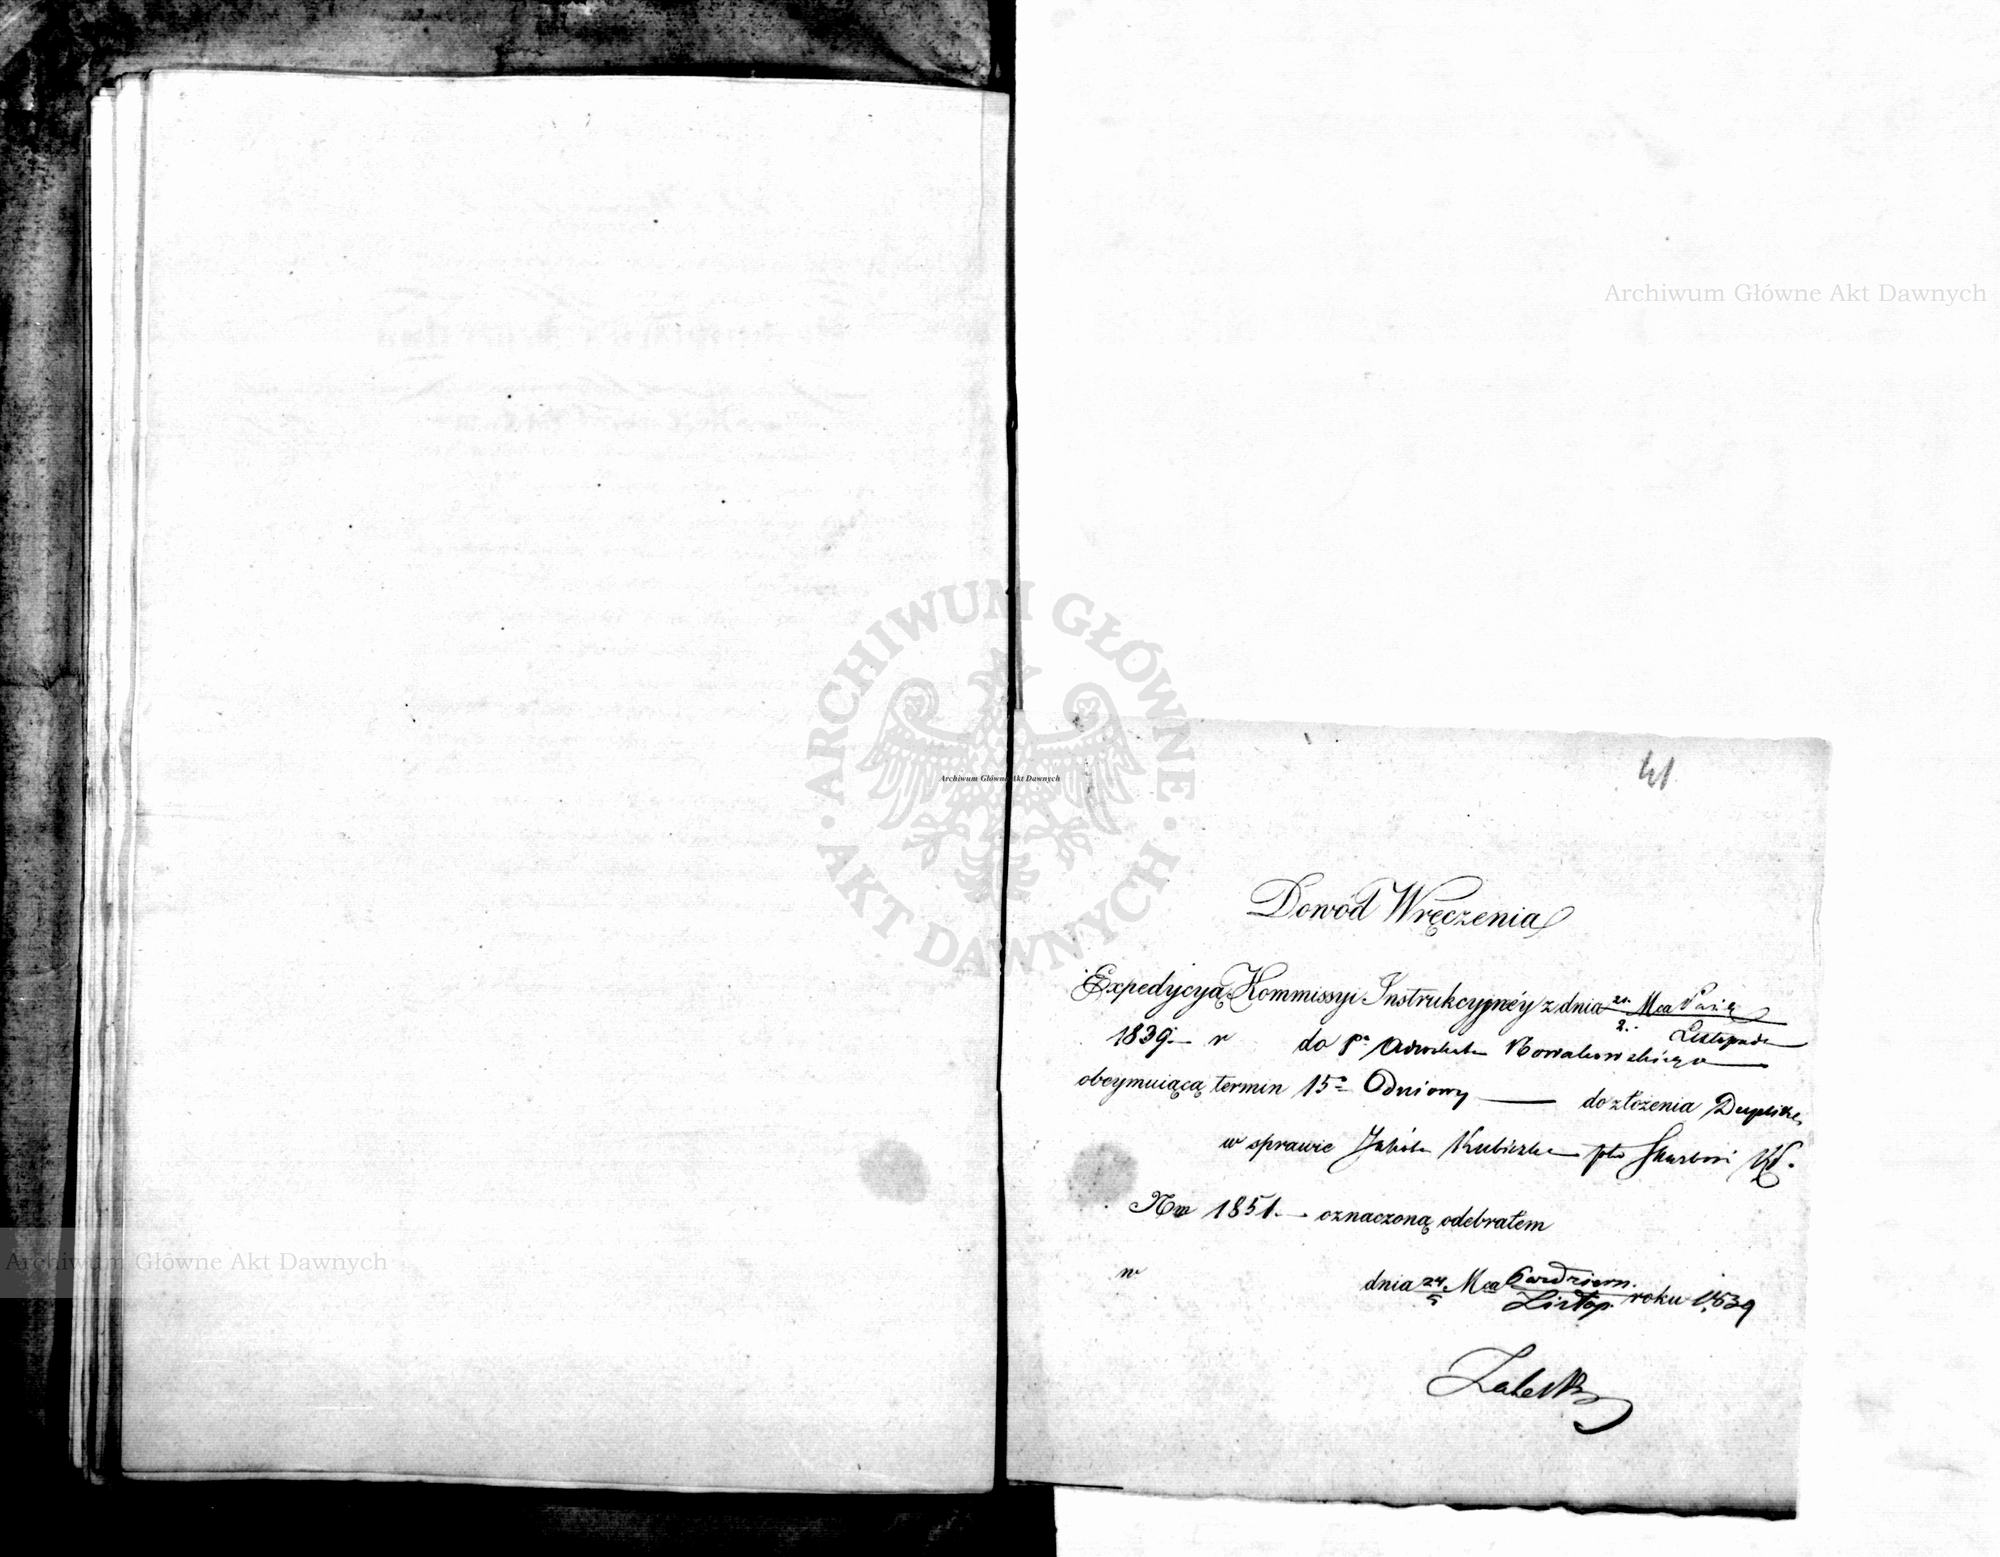 Archiwum Główne Akt Dawnych
ARCHIWUM GŁÓWNE
AKT DAWNYCH
Archiwum Główne Akt Dawnych
41
Dowód Wręczenia
Expedycyą Kommissyi Instrukcyjnéy z dnia 21. Mca Paźdz
2. Listopada
1839 r do Pa Adwokata Nowakowskiego
obeymuiącą termin 15o Odniowy do złożenia Dupliki
w sprawie Jakóba Kubiczka pto Skarbowi KP.
Nm 1851. oznaczoną odebrałem
w dnia 24 Mca Pazdziern. roku 1839
5 Listop.
Zaleski
Archiwum Główne Akt Dawnych